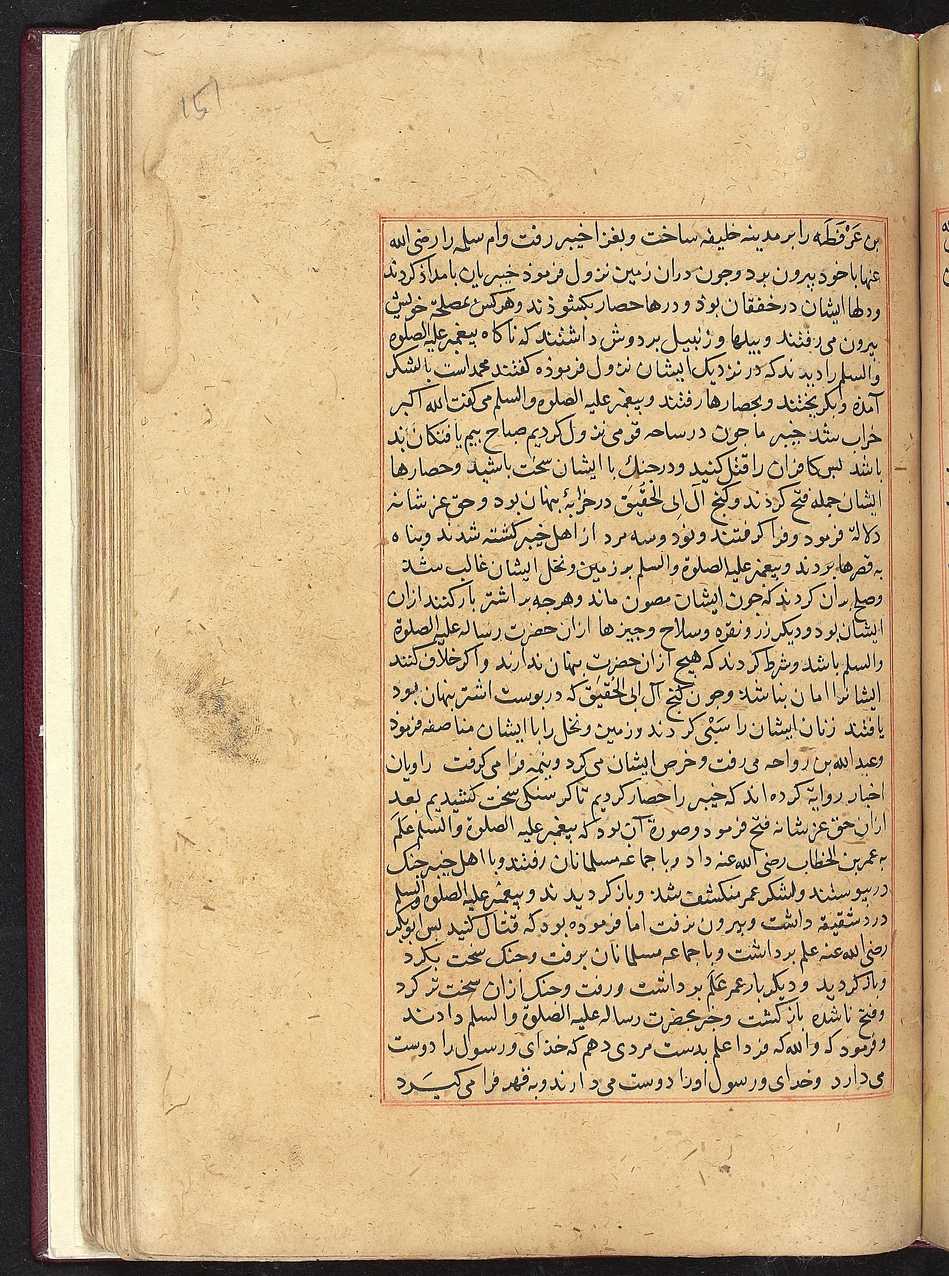 ١٥١
بن عَرْفَطَه را بر مدینه خلیفه ساخت و بغزا خیبر رفت و ام سلمه را رضی الله
عنها با خود بیرون برد و جون دران زمین نزول فرموذ خیبریان بامداذ کردند
و دلها ایشان در خفقان بوذ و درها حصار بکشوذند و هر کس بمصلحة خویش
بیرون می رفتند و بیلها و زنبیل بر دوش داشتند که ناکاه بیغمبر علیه الصلوة
والسلم را دیدند که در نزدیک ایشان نزول فرموذه کفتند محمد است با لشکر
آمده و بکریختند و بحصارها رفتند و بیغمبر علیه الصلوه والسلم می کفت الله اکبر
خراب شد خیبر ما جون در ساحه قومی نزول کردیم صباح بیم یافتکان بد
باشد بس کافران را قتل کنید و در جنک با ایشان سخت باشید و حصارها
ایشان جمله فتح کردند و کنج آل ابی الحُقَیق در خرابهٔ بنهان بود و حق عز شانه
دلالة فرمود و فرا کرفتند و نوَد و سه مرد از اهل خیبر کشته شدند و بناه
به قصرها بردند و بیغمبر علیه الصلوة والسلم بر زمین و نخل ایشان غالب شذ
و صلح بران کردند که خون ایشان مصون ماند و هرجه بر اشتر بار کنند ازان
ایشان بود و دیکر زر و نقره و سلاح و جیزها ازان حضرت رساله علیه الصلوة
والسلم باشد و شرط کردند که هیج ازان حضرت بنهان ندارند و اکر خلاف کنند
ایشانرا امان نباشذ و جون کنج آل ابی الحُقَیق که در بوست اشتر بنهان بود
یافتند زنان ایشان را سَبْی کردند و زمین و نخل را با ایشان مناصفه فرموذ
و عبد الله بن رواحه می رفت و خرص ایشان می کرد و نیمه فرا می کرفت راویان
اخبار روایة کرده اند که خیبر را حصار کردیم تا کرسنکی سخت کشیدیم بعد
ازان حق عز شانه فتح فرمود و صورة آن بود که بیغمبر علیه الصلوة والسلم عَلَم
به عمر بن الخطاب رضی الله عنه داد و با جماعه مسلمانان رفتند و با اهل خیبر جنک
در بیوستند و لشکر عمر منکشف شذ و باز کردیدند و بیغمبر علیه الصلوه والسلم
درد شقیقه داشت و بیرون نرفت اما فرموده بود که قتال کنید بس ابوبکر
رضی الله عنه علم برداشت و با جماعه مسلمانان برفت و جنک سخت بکرد
و باز کردید و دیکر بار عمر عَلَم برداشت و رفت و جنک ازان سخت تر کرد
و فتح ناشده باز کشت و خبر بحضرت رساله علیه الصلوة والسلم دادند
و فرمود که والله که فردا علم بدست مردی دهم که خذای و رسول را دوست
می دارد و خدای و رسول اورا دوست می دارند و به قهر فرا می کیرد